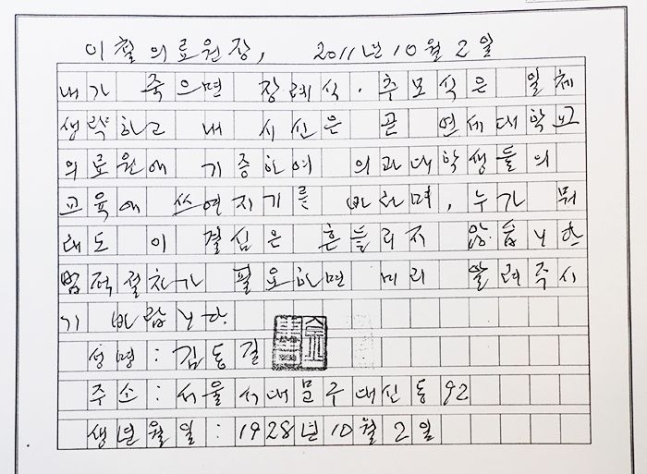 이철의료원장, 2011년 10월 2일
내가 죽으면 장례식·추모식은 일체
생략하고 내 시신은 곧 연세대학교
의료원에 기증하여 의과대학생들의
교육에 쓰여지기를 바라며, 누가 뭐
래도 이 결심은 흔들리지 않습니다
법적절차가 필요하면 미리 알려주시
기 바랍니다.
성명: 김동길
주소: 서울 서대문구 대신동 92
생년월일: 1928년 10월 2일